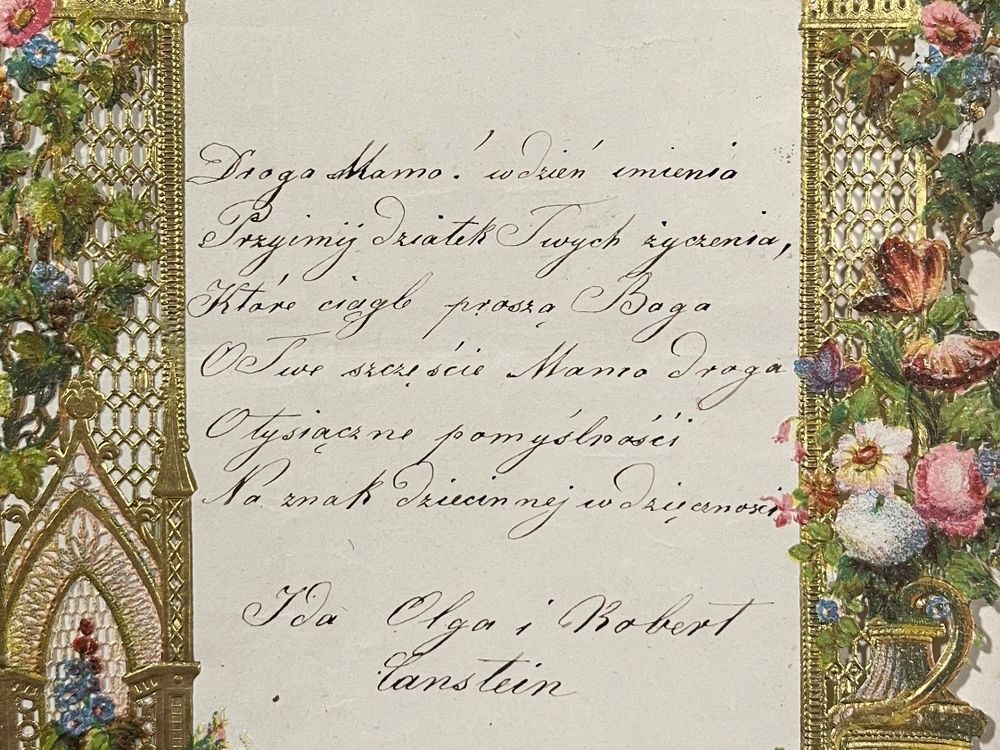 Droga Mamo! w dzień imienia
Przyimij dziatek Twych życzenia,
Które ciągle proszą Boga
O Twe szczęście Mamo droga
O tysiączne pomyślności
Na znak dziecinnej wdzięczności
Ida Olga i Robert
Canstein